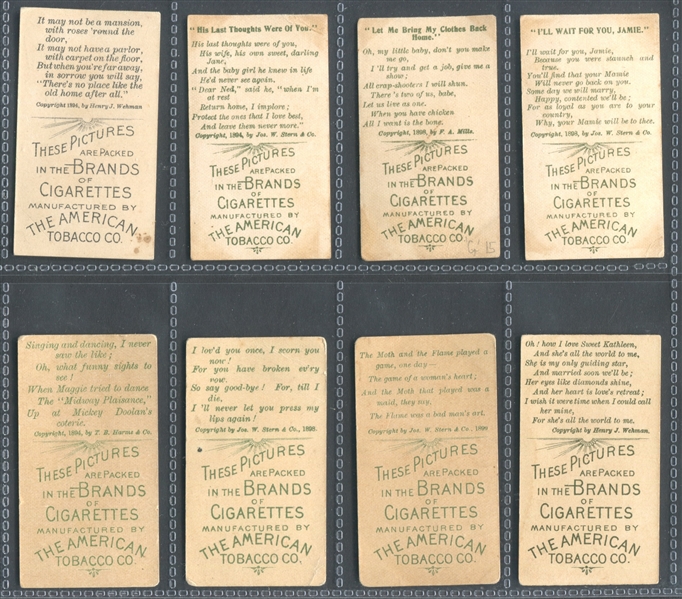 It may not be a mansion,
with roses 'round the
door,
It may not have a parlor,
with carpet on the floor,
But when you're far away,
in sorrow you will say,
"There's no place like the
old home after all."
Copyright 1894, by Henry J. Wehman
THESE PICTURES
ARE PACKED
IN THE BRANDS
OF
CIGARETTES
MANUFACTURED BY
THE AMERICAN
TOBACCO CO.
"His Last Thoughts Were Of You."
His last thoughts were of you,
His wife, his own sweet, darling
Jane,
And the baby girl he knew in life
He'd never see again.
"Dear Ned," she said, "when I'm
at rest
Return home, I implore;
Protect the ones that I love best,
And leave them never more."
Copyright, 1894, by Jos. W. Stern & Co.
THESE PICTURES
ARE PACKED
IN THE BRANDS
OF
CIGARETTES
MANUFACTURED BY
THE AMERICAN
TOBACCO CO.
"Let Me Bring My Clothes Back
Home."
Oh, my little baby, don't you make
me go,
I'll try and get a job, give me a
show;
All crap-shooters I will shun.
There's two of us, babe,
Let us live as one.
When you have chicken
All I want is the bone.
Copyright, 1898, by F. A. Mills.
THESE PICTURES
ARE PACKED
IN THE BRANDS
OF
CIGARETTES
MANUFACTURED BY
THE AMERICAN
TOBACCO CO.
15
"I'LL WAIT FOR YOU, JAMIE."
I'll wait for you, Jamie,
Because you were staunch and
true,
You'll find that your Mamie
Will never go back on you.
Some day we will marry,
Happy, contented we'll be;
For as loyal as you are to your
country,
Why, your Mamie will be to thee.
Copyright, 1898, by Jos. W. Stern & Co.
THESE PICTURES
ARE PACKED
IN THE BRANDS
OF
CIGARETTES
MANUFACTURED BY
THE AMERICAN
TOBACCO CO.
Singing and dancing, I never
saw the like;
Oh, what funny sights to
see!
When Maggie tried to dance
The "Midway Plaisance,"
Up at Mickey Doolan's
coterie.
Copyright, 1894, by T. B. Harms & Co.
THESE PICTURES
ARE PACKED
IN THE BRANDS
OF
CIGARETTES
MANUFACTURED BY
THE AMERICAN
TOBACCO CO.
I lov'd you once, I scorn you
now!
For you have broken ev'ry
vow.
So say good-bye! For, till I
die,
I'll never let you press my
lips again!
Copyright, by Jos. W. Stern & Co., 1898.
THESE PICTURES
ARE PACKED
IN THE BRANDS
OF
CIGARETTES
MANUFACTURED BY
THE AMERICAN
TOBACCO CO.
The Moth and the Flame played a
game, one day—
The game of a woman's heart;
And the Moth that played was a
maid, they say,
The Flame was a bad man's art.
Copyright, by Jos. W. Stern & Co.,
THESE PICTURES
ARE PACKED
IN THE BRANDS
OF
CIGARETTES
MANUFACTURED BY
THE AMERICAN
TOBACCO CO.
Oh! how I love Sweet Kathleen,
And she's all the world to me,
She is my only guiding star,
And married soon we'll be;
Her eyes like diamonds shine,
And her heart is love's retreat;
I wish it were time when I could call
her mine,
For she's all the world to me.
Copyright by Henry J. Wehman.
THESE PICTURES
ARE PACKED
IN THE BRANDS
OF
CIGARETTES
MANUFACTURED BY
THE AMERICAN
TOBACCO CO.